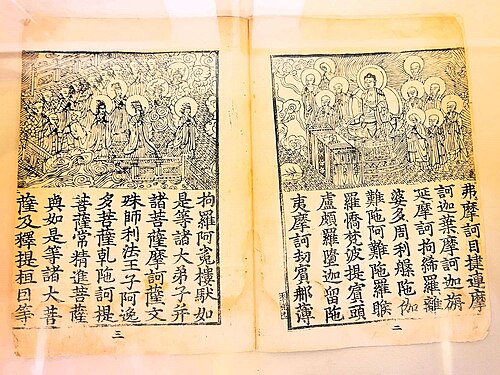 弗摩訶目揵連摩
訶迦葉摩訶迦旃
延摩訶拘絺羅離
婆多周利槃陀伽
難陀阿難陀羅睺
羅憍梵波提賓頭
盧頗羅墮迦留陀
夷摩訶劫賓那薄
二
拘羅阿㝹樓馱如
是等諸大弟子并
諸菩薩摩訶薩文
殊師利法王子阿逸
多菩薩乾陀訶提
菩薩常精進菩薩
與如是等諸大菩
薩及釋提桓因等
三